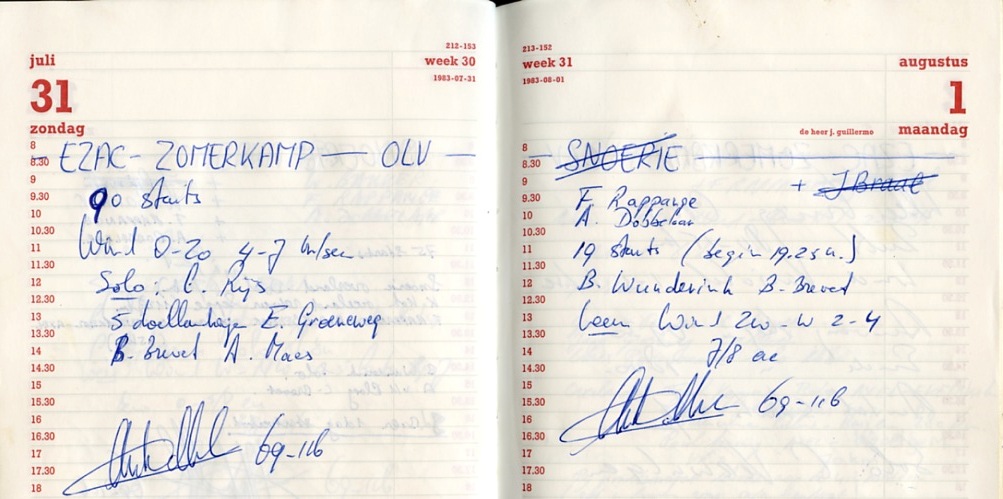 juli
212-153
week 30
1983-07-31
31
zondag
8
8.30
EZAC - ZOMERKAMP — OLV —
9
9.30
90 starts
10
10.30
Wind 0-20 4-7 m/sec
11
11.30
12
Solo: C. Rijs
12.30
13
5 doellandinje E. Groeneweg
13.30
B-Brevet A. Maas
14
14.30
15
15.30
16
16.30
69-116
17
17.30
18
213-152
week 31
1983-08-01
augustus
1
de heer j. guillermo
maandag
8
8.30
SNOERIE
9
+ J Braat
9.30
F. Rappange
10
A. Dobbelaar
10.30
11
19 starts (begin 19.25 u.)
11.30
12
B. Wunderink B-Brevet
12.30
13
Geen Wind ZW-W 2-4
13.30
14
7/8 ac
14.30
15
15.30
69-116
16
16.30
17
17.30
18